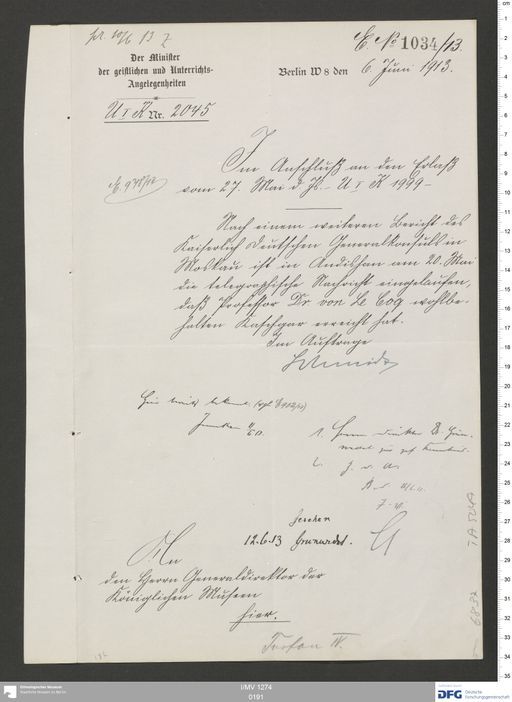 pr. 10/6 13
E. No 1034/13.
Der Minister
der geistlichen und Unterrichts-
Angelegenheiten
Berlin W 8 den 6. Juni 1913.
U I K Nr. 2045
Im Anschluß an den Erlaß
vom 27. Mai d. Js. – U I K 1999 –
Nach einem weiteren Bericht des
Kaiserlich Deutschen Generalkonsuls in
Moskau ist in Andishan am 20. Mai
die telegraphische Nachricht eingelaufen,
daß Professor Dr. von Le Coq wohlbe-
halten Kaschgar erreicht hat.
Im Auftrage
Schmidt
1. Herrn Direktor
2. Z. d. A.
Gesehen
12.6.13 Grünwedel.
An
den Herrn Generaldirektor der
Königlichen Museen
hier.
Turfan IV.
I/MV 1274
0191
Ethnologisches Museum
Staatliche Museen zu Berlin
DFG Deutsche
Forschungsgemeinschaft